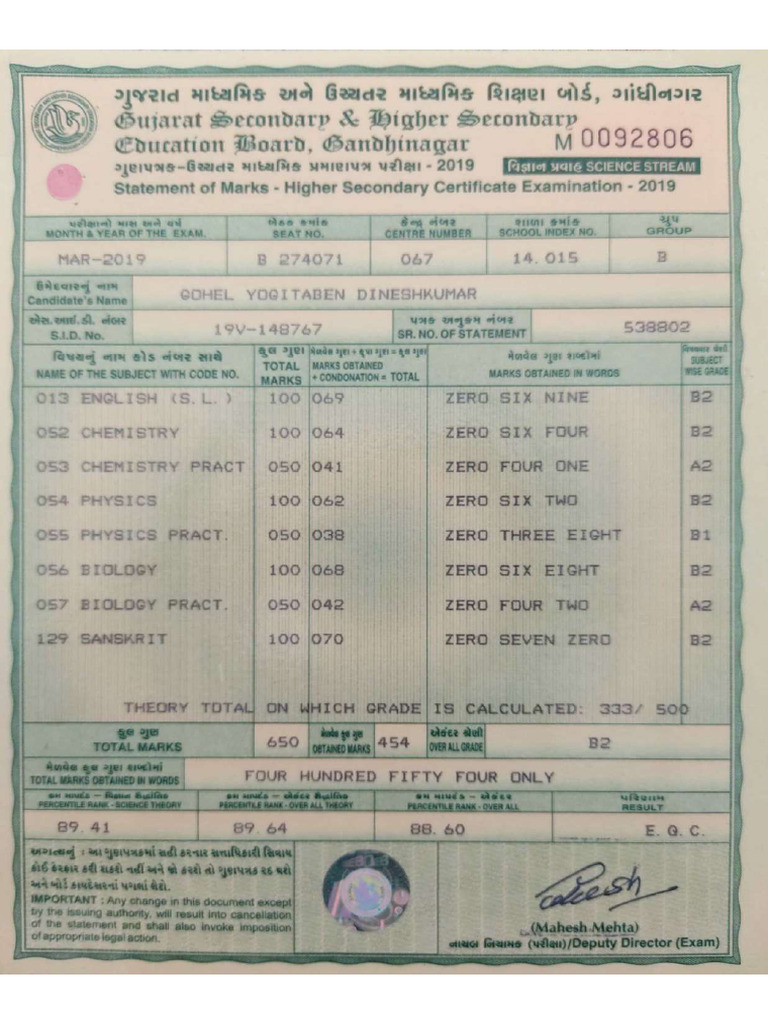 ગુજરાત માધ્યમિક અને ઉચ્ચતર માધ્યમિક શિક્ષણ બોર્ડ, ગાંધીનગર
Gujarat Secondary & Higher Secondary
Education Board, Gandhinagar
M 0092806
ગુણપત્રક-ઉચ્ચતર માધ્યમિક પ્રમાણપત્ર પરીક્ષા - 2019 વિજ્ઞાન પ્રવાહ SCIENCE STREAM
Statement of Marks - Higher Secondary Certificate Examination - 2019
પરીક્ષાનો માસ અને વર્ષ બેઠક ક્રમાંક કેન્દ્ર નંબર શાળા ક્રમાંક ગ્રુપ
MONTH & YEAR OF THE EXAM. SEAT NO. CENTRE NUMBER SCHOOL INDEX NO. GROUP
MAR-2019 B 274071 067 14.015 B
ઉમેદવારનું નામ
Candidate's Name GOHEL YOGITABEN DINESHKUMAR
એસ.આઈ.ડી. નંબર પત્રક અનુક્રમ નંબર
S.I.D. No. 19V-148767 SR. NO. OF STATEMENT 538802
વિષયનું નામ કોડ નંબર સાથે કુલ ગુણ મેળવેલ ગુણ + કૃપા ગુણ = કુલ ગુણ મેળવેલ ગુણ શબ્દોમાં વિષયવાર શ્રેણી
NAME OF THE SUBJECT WITH CODE NO. TOTAL MARKS MARKS OBTAINED + CONDONATION = TOTAL MARKS OBTAINED IN WORDS SUBJECT WISE GRADE
013 ENGLISH (S.L.) 100 069 ZERO SIX NINE B2
052 CHEMISTRY 100 064 ZERO SIX FOUR B2
053 CHEMISTRY PRACT 050 041 ZERO FOUR ONE A2
054 PHYSICS 100 062 ZERO SIX TWO B2
055 PHYSICS PRACT. 050 038 ZERO THREE EIGHT B1
056 BIOLOGY 100 068 ZERO SIX EIGHT B2
057 BIOLOGY PRACT. 050 042 ZERO FOUR TWO A2
129 SANSKRIT 100 070 ZERO SEVEN ZERO B2
THEORY TOTAL ON WHICH GRADE IS CALCULATED: 333/ 500
કુલ ગુણ મેળવેલ કુલ ગુણ એકંદર શ્રેણી
TOTAL MARKS 650 OBTAINED MARKS 454 OVER ALL GRADE B2
મેળવેલ કુલ ગુણ શબ્દોમાં
TOTAL MARKS OBTAINED IN WORDS FOUR HUNDRED FIFTY FOUR ONLY
ક્રમ માપદંડ - વિજ્ઞાન સૈદ્ધાંતિક ક્રમ માપદંડ - એકંદર સૈદ્ધાંતિક ક્રમ માપદંડ - એકંદર પરિણામ
PERCENTILE RANK - SCIENCE THEORY PERCENTILE RANK - OVER ALL THEORY PERCENTILE RANK - OVER ALL RESULT
89.41 89.64 88.60 E.Q.C.
અગત્યનું : આ ગુણપત્રકમાં સહી કરનાર સત્તાધિકારી સિવાય
કોઈ ફેરફાર કરી શકશે નહીં અને જો કરશે તો ગુણપત્રક રદ થશે
અને બોર્ડ કાયદેસરનાં પગલાં લેશે.
IMPORTANT : Any change in this document except
by the issuing authority, will result into cancellation
of the statement and shall also invoke imposition
of appropriate legal action.
(Mahesh Mehta)
નાયબ નિયામક (પરીક્ષા)/Deputy Director (Exam)